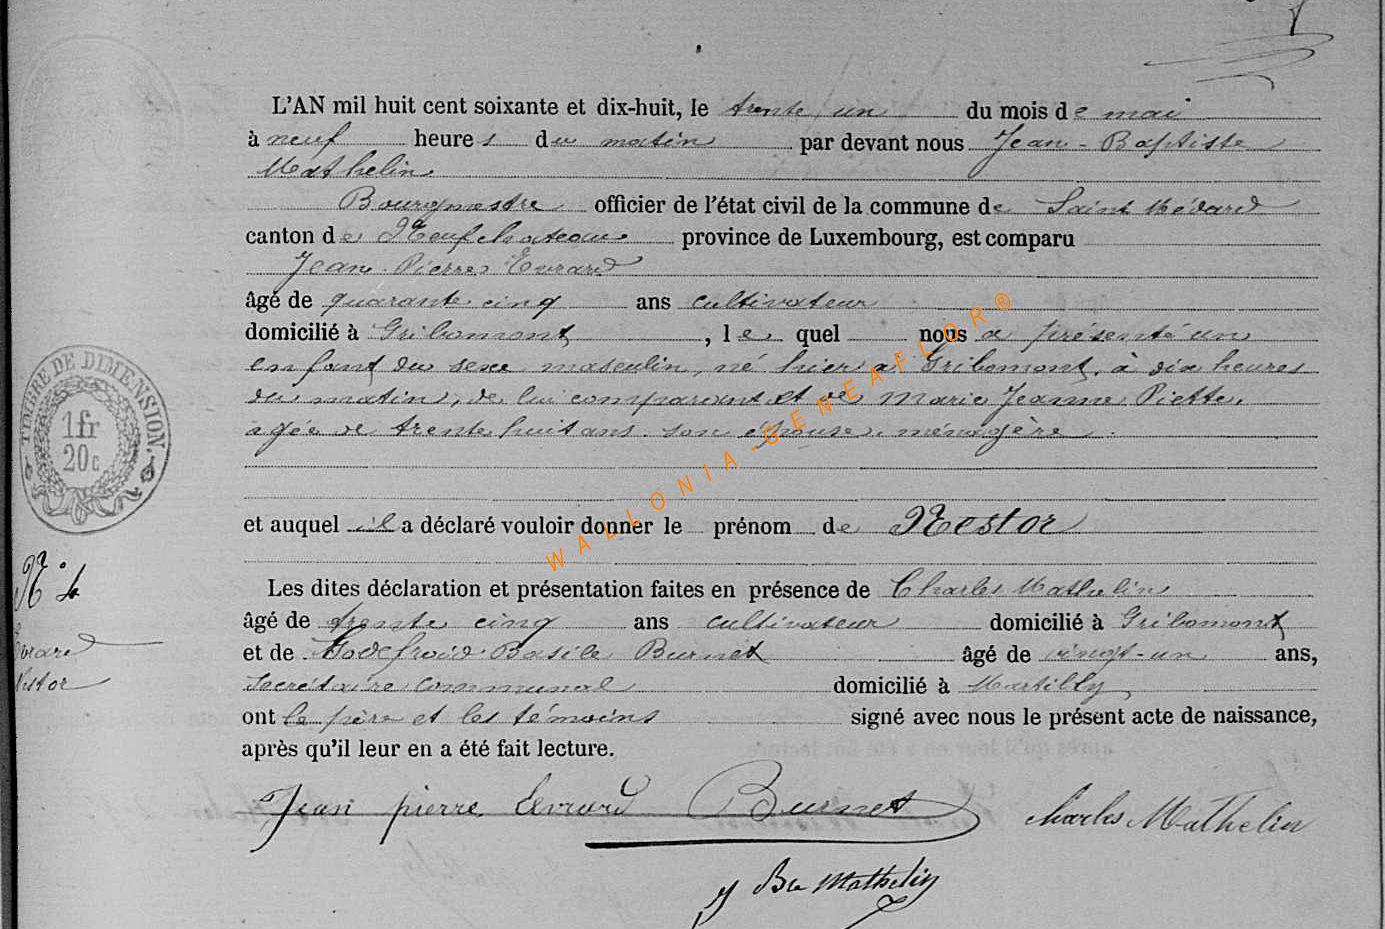 L'AN mil huit cent soixante et dix-huit, le trente un du mois de mai
à neuf heures du matin par devant nous Jean-Baptiste
Mathelin
Bourgmestre officier de l'état civil de la commune de Saint Médard
canton de Neufchateau province de Luxembourg, est comparu
Jean Pierre Evrard
âgé de quarante cinq ans cultivateur
domicilié à Gribomont, lequel nous a présenté un
enfant du sexe masculin, né hier à Gribomont, à dix heures
du matin, de lui comparant et de Marie Jeanne Piette,
agée de trente huit ans son épouse, ménagère.
et auquel il a déclaré vouloir donner le prénom de Nestor
Les dites déclaration et présentation faites en présence de Charles Mathelin
âgé de trente cinq ans cultivateur domicilié à Gribomont
et de Godefroid Basile Burnet âgé de vingt-un ans,
Secrétaire communal domicilié à Martilly
ont le père et les témoins signé avec nous le présent acte de naissance,
après qu'il leur en a été fait lecture.
Jean pierre Evrard Burnet Charles Mathelin
J Bte Mathelin
TIMBRE DE DIMENSION.
1fr
20c
N° 4
Evrard
Nestor
WALLONIA-GENEAFLOR®